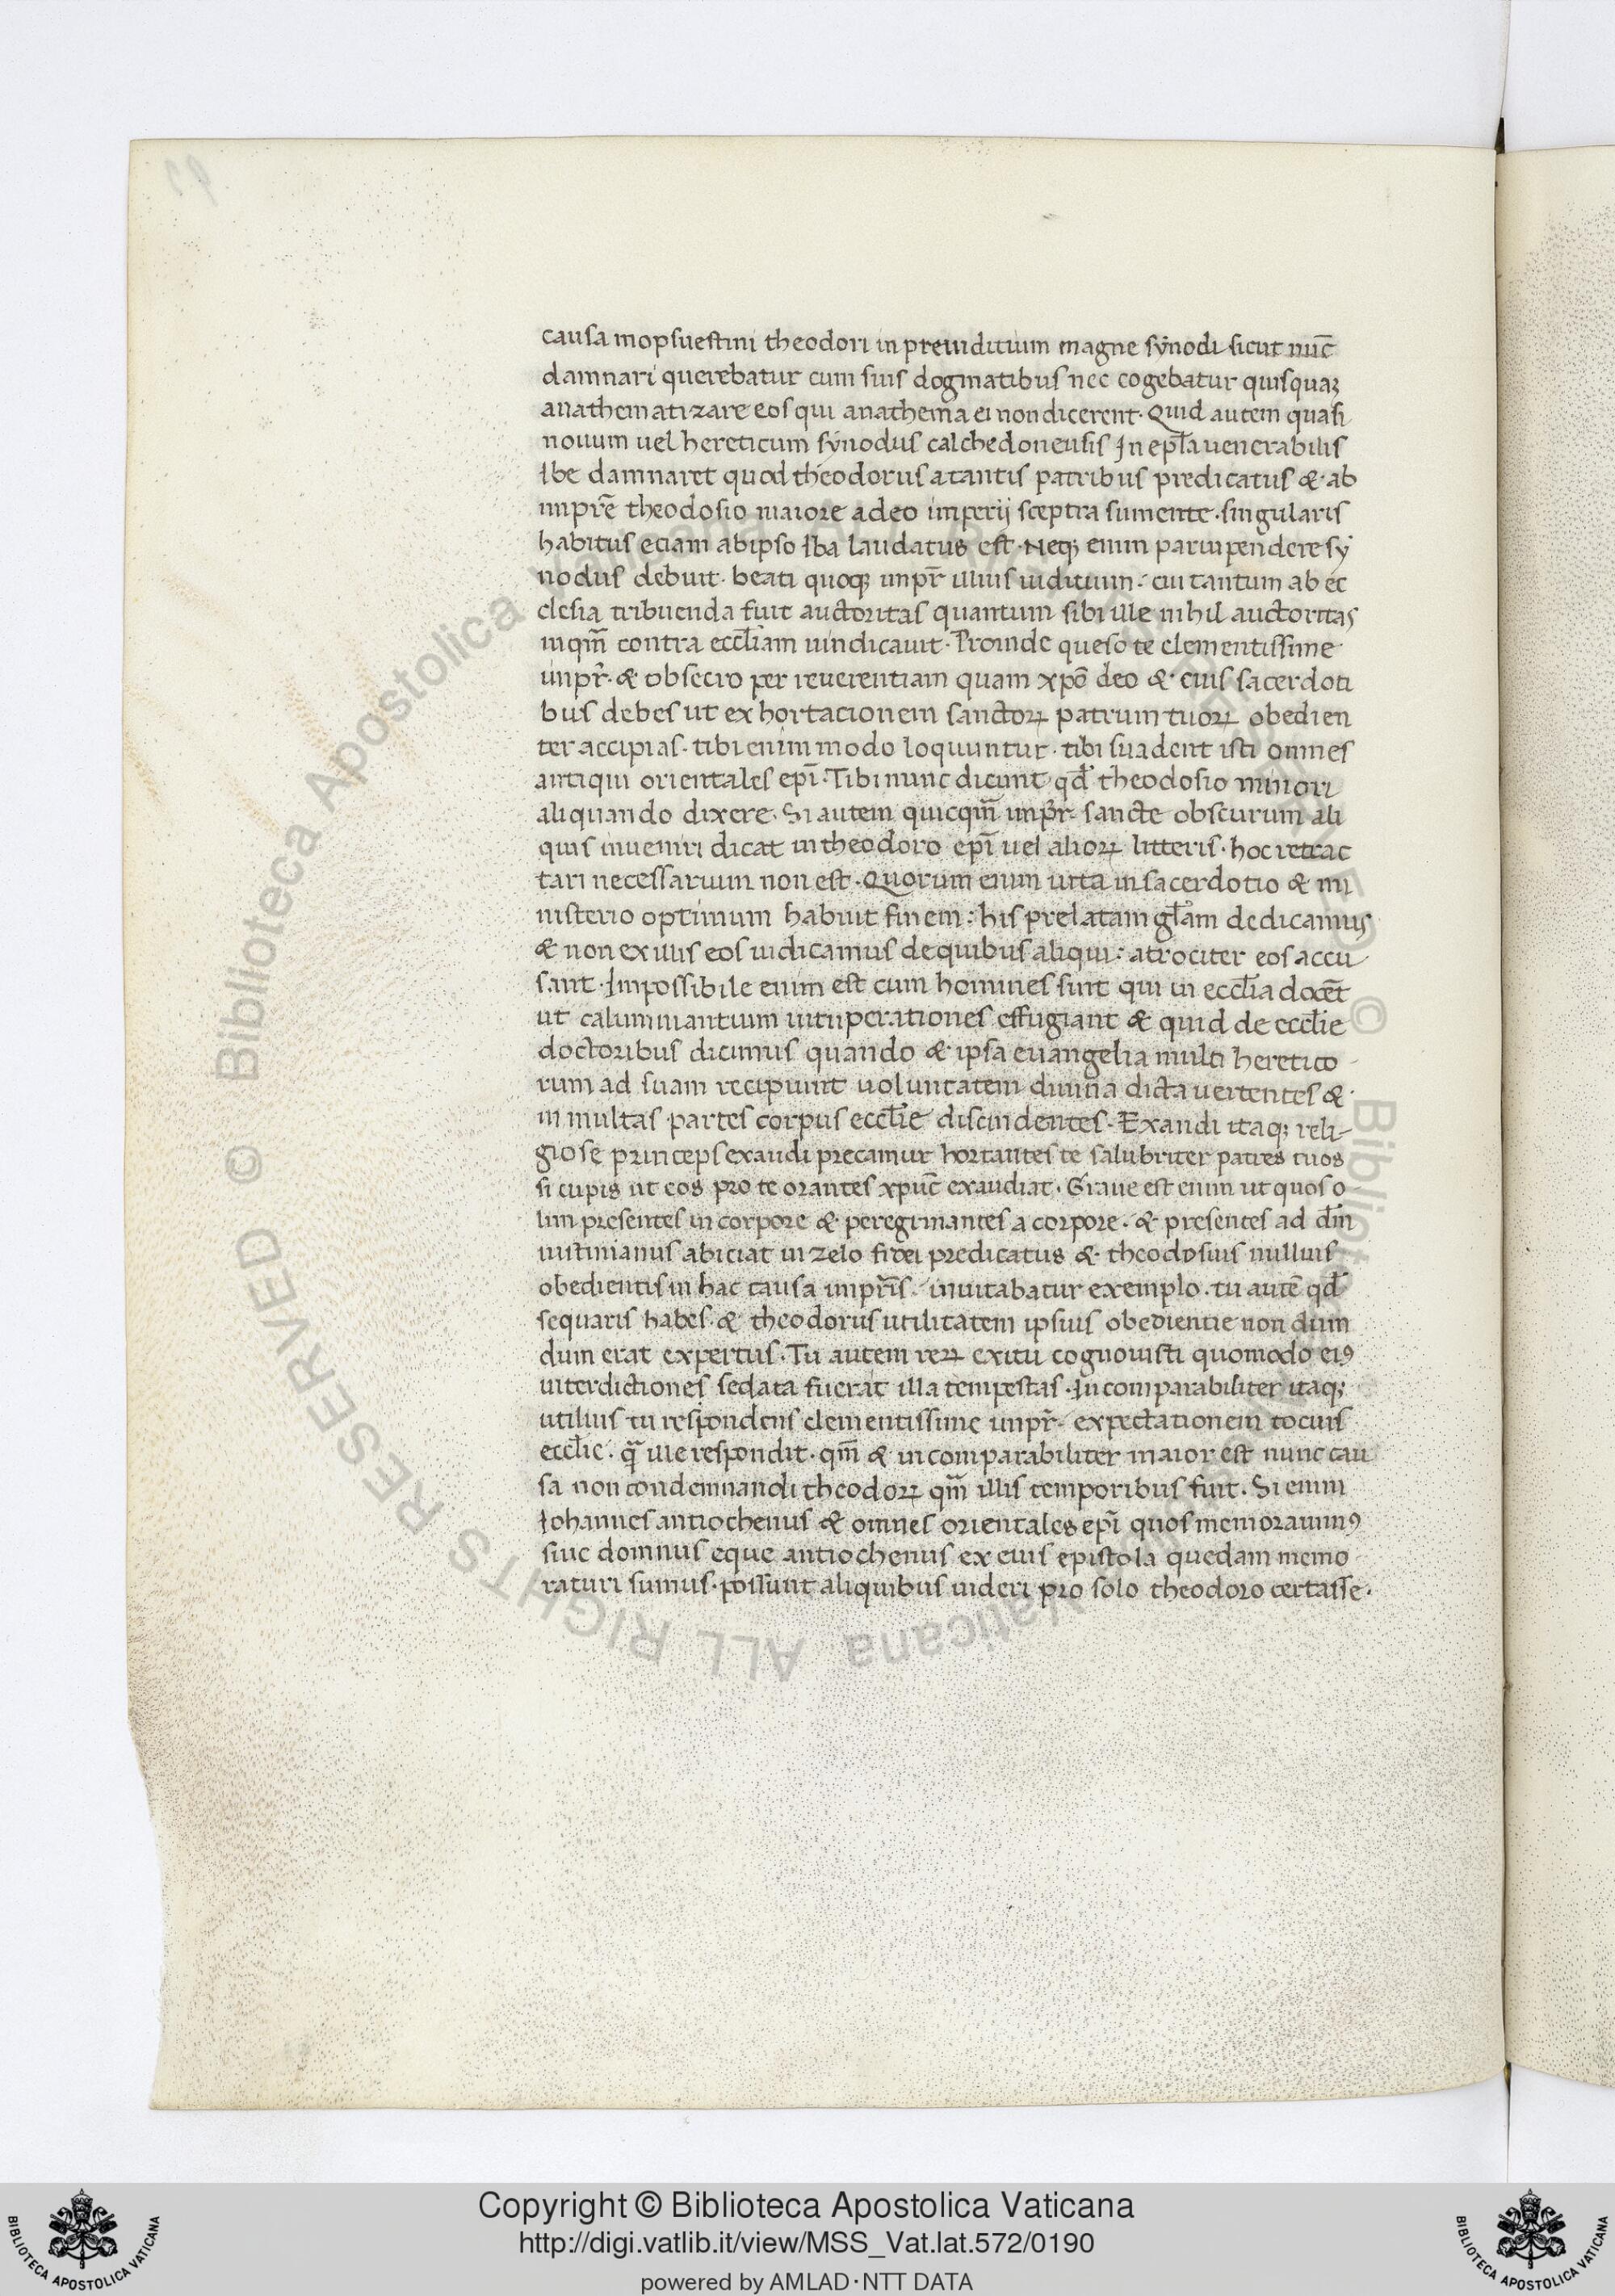 causa mopsuestini theodori in preiuditium magne sýnodi sicut nūc
damnari querebatur cum suis dogmatibus nec cogebatur quisquaꝫ
anathematizare eos qui anathema ei non dicerent · Quid autem quasi
nouum uel hereticum sýnodus calchedonensis In epl̄a uenerabilis
Ibe damnaret quod theodorus a tantis patribus predicatus & ab
imprē theodosio maiore adeo imperij sceptra sumente · singularis
habitus eciam ab ipso Iba laudatus est · Neqꝫ enim paruipendere sý
nodus debuit · beati quoqꝫ impr̄ illius iuditium · cui tantum ab ec
clesia tribuenda fuit auctoritas quantum sibi ille nihil auctoritas
inqm̄ contra eccl̄iam uindicauit · Proinde queso te clementissime
impr̄ · & obsecro per reuerentiam quam xpō deo & eius sacerdoti
bus debes ut exhortacionem sanctoꝝ patrum tuoꝝ obedien
ter accipias · tibi enim modo loquuntur · tibi suadent isti omnes
antiqui orientales epī · Tibi nunc dicunt qd̄ theodosio minori
aliquando dixere · Si autem quicqm̄ impr̄ sancte obscurum ali
quis inueniri dicat in theodoro epī uel alioꝝ litteris · hoc retrac
tari necessarium non est · Quorum enim uita in sacerdotio & mi
nisterio optimum habuit finem : his prelatam gl̄am dedicamus
& non ex illis eos iudicamus de quibus aliqui : atrociter eos accu
sant · Impossibile enim est cum homines sint qui in eccl̄ia docēt
ut calumniantium uituperationes effugiant & quid de eccl̄ie
doctoribus dicimus quando & ipsa euangelia multi heretico
rum ad suam recipiunt uoluntatem diuina dicta uertentes &
in multas partes corpus eccl̄ie discindentes · Exaudi itaqꝫ reli-
giose princeps exaudi precamur hortantes te salubriter patres tuos
si cupis ut eos pro te orantes xpūc exaudiat · Graue est enim ut quos o
lim presentes in corpore & peregrinantes a corpore · & presentes ad dm̄
iustinianus abiciat in zelo fidei predicatus & theodosius nullius
obedientis in hac causa impr̄is · inuitabatur exemplo · tu autē qd̄
sequaris habes · & theodorus utilitatem ipsius obedientie non dum
dum erat expertus · Tu autem reꝝ exitu cognouisti quomodo eiꝯ
interdictiones sedata fuerat illa tempestas · Incomparabiliter itaqꝫ
utilius tu respondens clementissime impr̄ · expectationem tocius
eccl̄ie · q̄ ille respondit · qm̄ & incomparabiliter maior est nunc cau
sa non condemnandi theodoꝝ qm̄ illis temporibus fuit · Si enim
Iohannes antiochenus & omnes orientales epī quos memorauimꝯ
siue domnus eque antiochenus ex eius epistola quedam memo
raturi sumus · possunt aliquibus uideri pro solo theodoro certasse ·
Copyright © Biblioteca Apostolica Vaticana
http://digi.vatlib.it/view/MSS_Vat.lat.572/0190
powered by AMLAD·NTT DATA